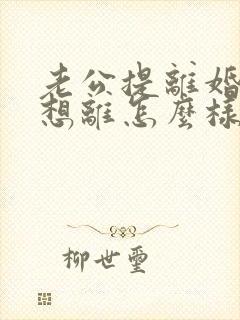 老公提離婚
想離怎麼樣
柳世璽